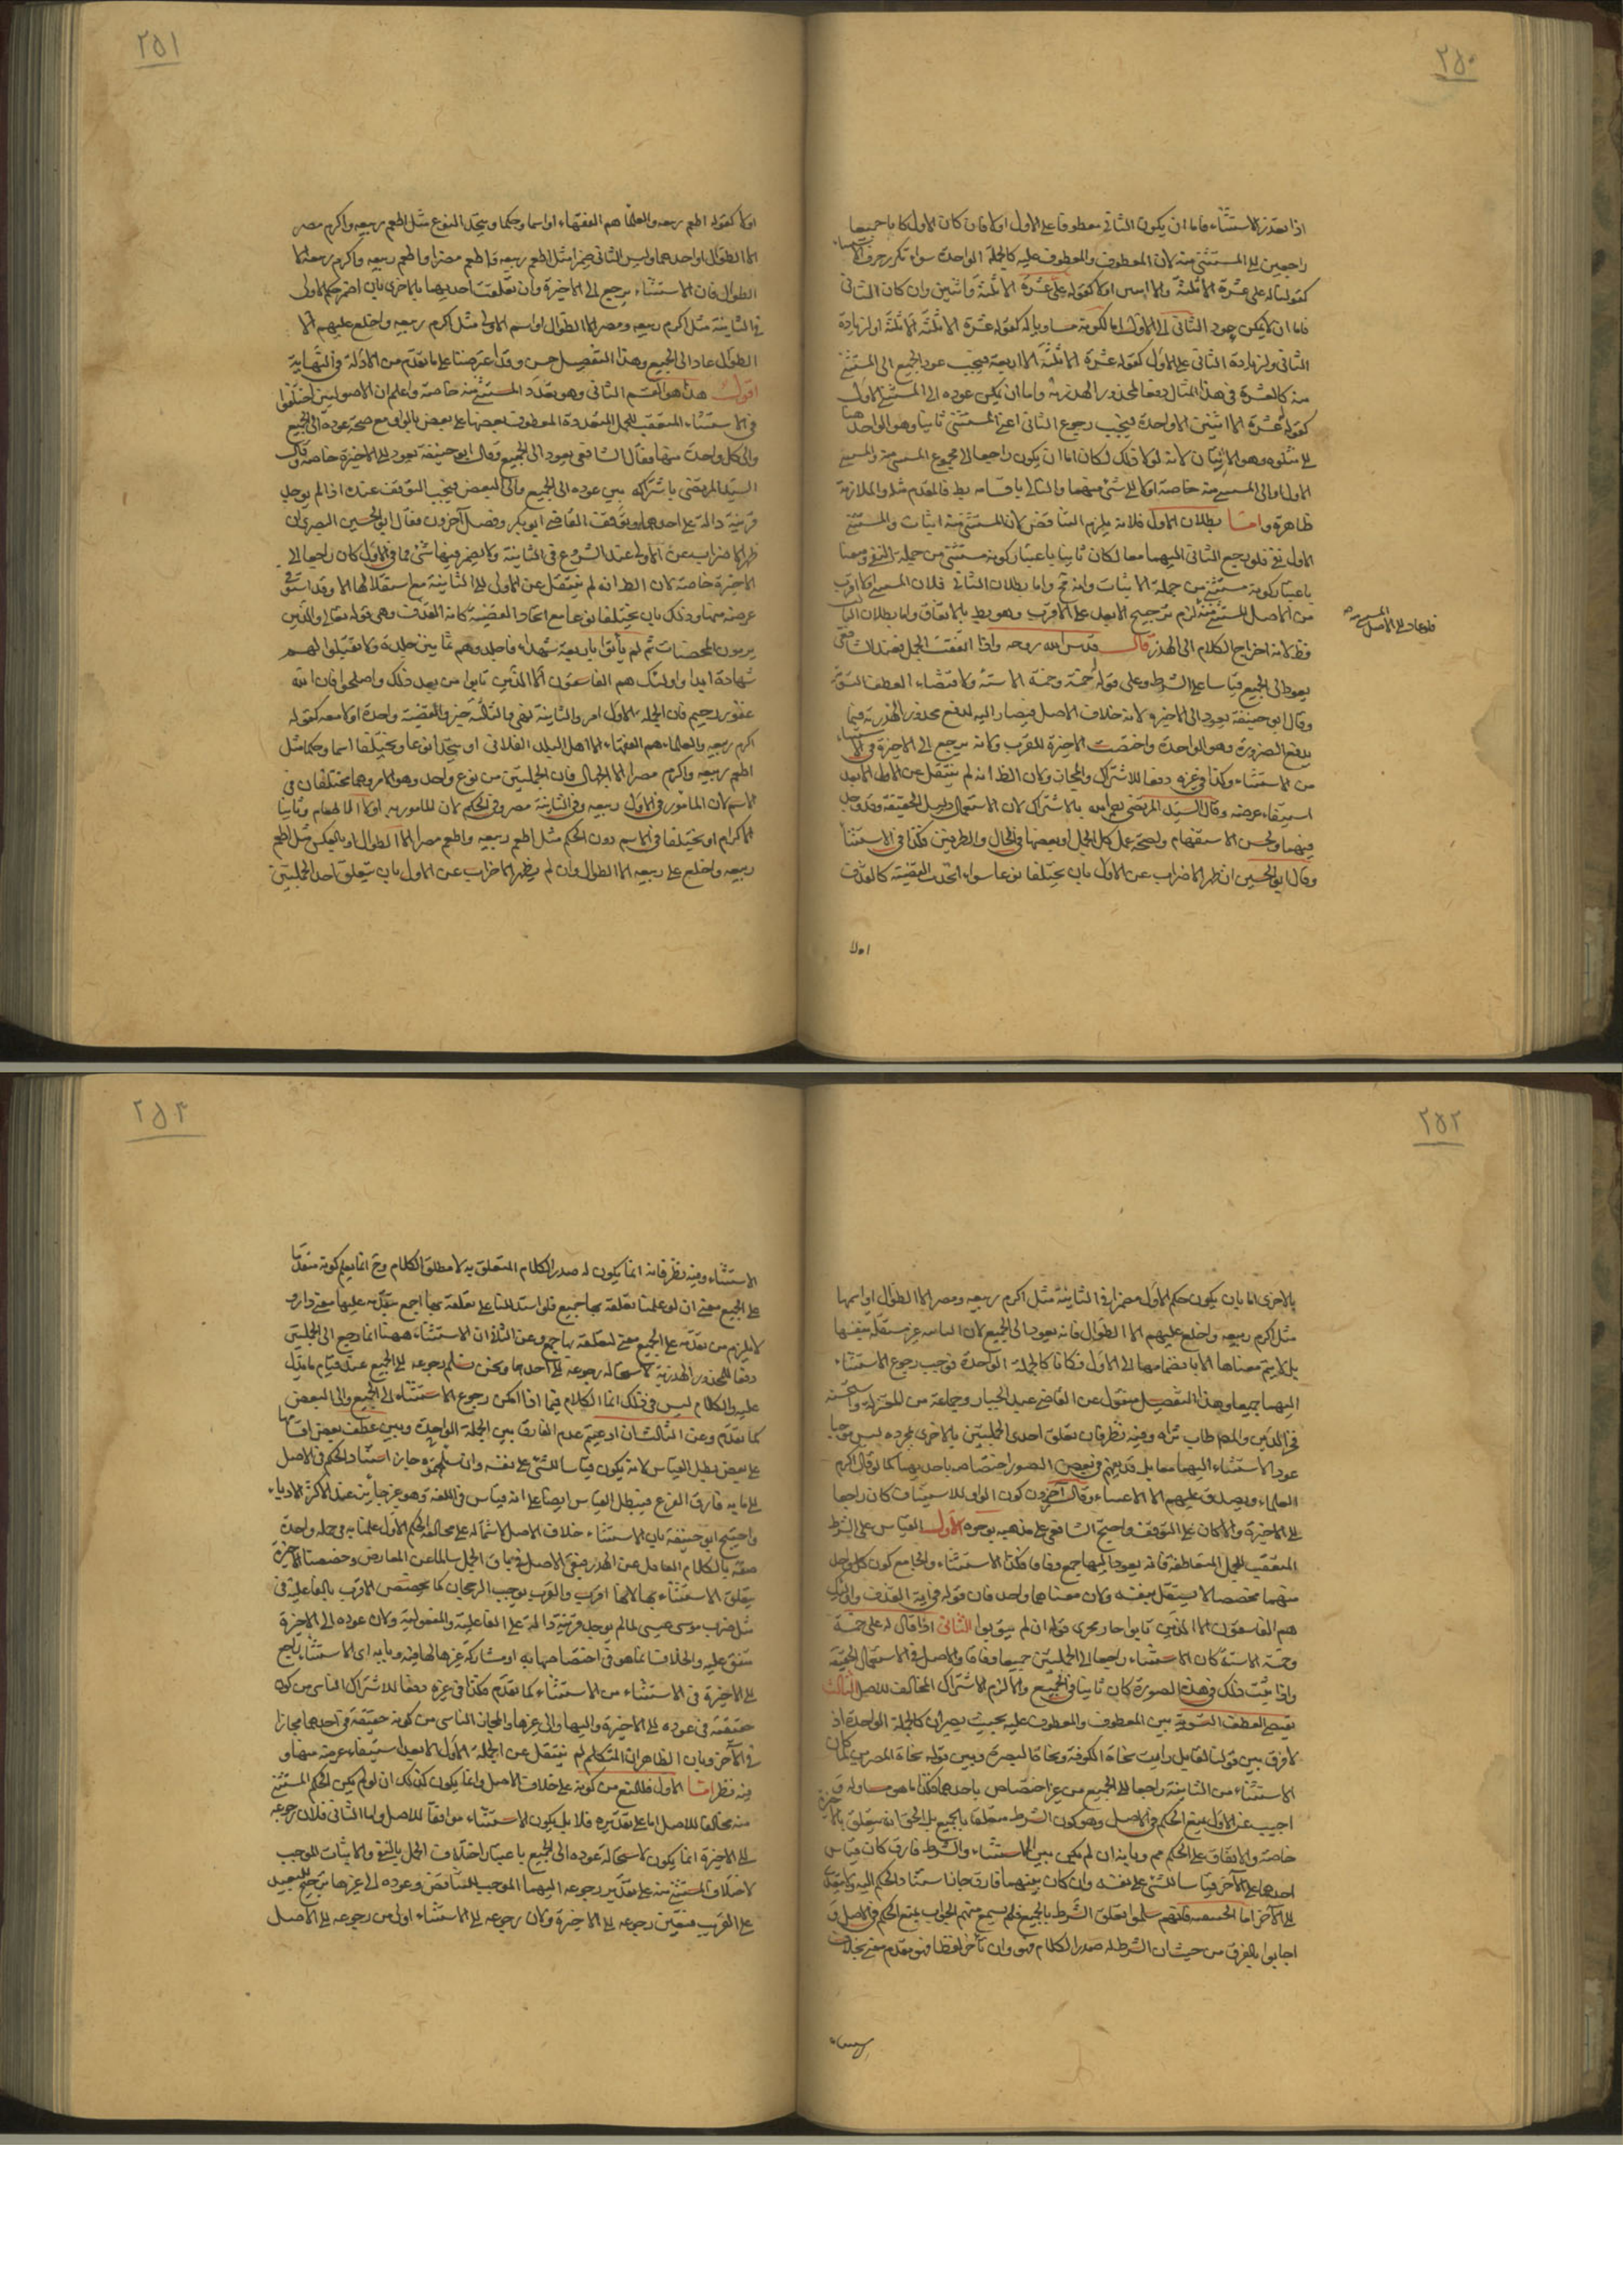 ٢٥٠
اذا تعدد الاستثناء فاما ان يكون الثاني معطوفا على الاول او لا فان كان الاول كانا جميعا
راجعين الى المستثنى منه لان المعطوف والمعطوف عليه كالجملة الواحدة سواء تكرر حرف الاستثناء
كقوله له على عشرة الا ثلثة والا اثنين او لا كقوله على عشرة الا ثلثة واثنين وان كان الثاني
فاما ان لا يمكن عود الثاني الى الاول اما لكونه مساويا له كقوله عشرة الا ثلثة الا ثلثة او لزيادة
الثاني على الاول كقوله عشرة الا ثلثة الا اربعة فيجب عود الجميع الى المستثنى
منه كالعشرة في هذا المثال دفعا لمحذور الهذرية واما ان يمكن عوده الى المستثنى الاول
كقوله عشرة الا اثنين الا واحدة فيجب رجوع الثاني اعني المستثنى ثانيا وهو الواحد هنا
الى متلوه وهو الاثنان لانه لولا ذلك لكان اما ان يكون راجعا الى مجموع المستثنى منه والمستثنى
الاول او الى المستثنى منه خاصة او لا الى شيء منهما والتالي باقسامه بط فالمقدم مثله والملازمة
ظاهرة واما بطلان الاول فلانه يلزم التناقض لان المستثنى منه اثبات والمستثنى
الاول نفي فلو رجع الثاني اليهما معا لكان ثانيا باعتبار كونه مستثنى من جملة النفي ومعنا
باعتبار كونه مستثنى من جملة الاثبات وانه مح واما بطلان الثاني فلان المستثنى اقرب
من الاصل المستثنى منه لزم ترجيح الابعد على الاقرب وهو بط بالاتفاق واما بطلان الثالث
فظ لانه اخراج الكلام الى الهذر قال قدس الله روحه واذا تعقب الجمل فعند الشافعي
يعود الى الجميع قياسا على الشرط وعلى قوله خمسة وخمسة الا ستة ولاقتضاء العطف التسوية
وقال ابو حنيفة يعود الى الاخيرة لانه خلاف الاصل فيصار اليه لدفع محذور الهذرية فيما
يدفع الضرورة وهو الواحدة واختصت الاخيرة للقرب ولانه يرجع الى الاخيرة في الاستثناء
من الاستثناء وكذا في غيره دفعا للاشتراك والمجاز ولان الظ انه لم ينتقل عن الاول الا بعد
استيفاء غرضه وقال السيد المرتضى بالاشتراك لان الاستعمال دليل الحقيقة وقد وجد
فيهما ولحسن الاستفهام ولصحة عمل كل الجمل او بعضها في الحال والظرفين فكذا في الاستثناء
وقال ابو الحسين ان ظهر الاضراب عن الاول بان يختلفا نوعا سواء اتحدت القضية كالقذف
او لا
٢٥١
او لا كقوله اطعم ربيعه والعلماء هم الفقهاء او اسما وحكما ويتحد النوع مثل اطعم ربيعه واكرم مضر
الا الطوال او احدهما وليس الثاني ضميرا مثل اطعم ربيعه واطعم مضر او اطعم ربيعه واكرم ربيعه الا
الطوال فان الاستثناء يرجع الى الاخيرة وان تعلقت احديهما بالاخرى بان اضمر حكم الاولى
في الثانية مثل اكرم ربيعه ومضر الا الطوال او اسم الاولى مثل اكرم ربيعه واخلع عليهم الا
الطوال عاد الى الجميع وهذا التفصيل حسن وقد اعترضنا على ما تقدم من الادلة في النهاية
اقول هذا هو القسم الثاني وهو تعدد المستثنى منه خاصة واعلم ان الاصوليين اختلفوا
في الاستثناء المتعقب للجمل المتعددة المعطوف بعضها على بعض بالواو مع صحة عوده الى الجميع
والى كل واحدة منها فقال الشافعي يعود الى الجميع وقال ابو حنيفة يعود الى الاخيرة خاصة وقال
السيد المرتضى باشتراكه بين عوده الى الجميع والى البعض فيجب التوقف عنده اذا لم يوجد
قرينة دالة على احدهما وتوقف القاضي ابو بكر وفصل آخرون فقال ابو الحسين البصري ان
ظهر الاضراب عن الاولى عند الشروع في الثانية ولا يضمر فيها شيء مما في الاولى كان راجعا الى
الاخيرة خاصة لان الظ انه لم ينتقل عن الاولى الى الثانية مع استقلالها الا وقد استوفى
غرضه منها وذلك بان يختلفا نوعا مع اتحاد القضية كاية القذف وهي قوله تعالى والذين
يرمون المحصنات ثم لم يأتوا باربعة شهداء فاجلدوهم ثمانين جلدة ولا تقبلوا لهم
شهادة ابدا واولئك هم الفاسقون الا الذين تابوا من بعد ذلك واصلحوا فان الله
غفور رحيم فان الجملة الاولى امر والثانية نهي والثالثة خبر والقضية واحدة او لا معه كقوله
اكرم ربيعه والعلماء هم الفقهاء الا اهل البلد الفلاني او يتحد نوعا ويختلفا اسما وحكما مثل
اطعم ربيعه واكرم مضر الا الجهال فان الجملتين من نوع واحد وهو الامر وهما مختلفان في
الاسم لان المأمور في الاول ربيعه وفي الثانية مضر وفي الحكم لان المأمور به اولا الاطعام وثانيا
الاكرام او يختلفا في الاسم دون الحكم مثل اطعم ربيعه واطعم مضر الا الطوال او بالعكس مثل اطعم
ربيعه واخلع على ربيعه الا الطوال وان لم يظهر الاضراب عن الاول بان يتعلق احد الجملتين
٢٥٢
بالاخرى اما بان يكون حكم الاول مضمرا في الثانية مثل اكرم ربيعه ومضر الا الطوال او اسمها
مثل اكرم ربيعه واخلع عليهم الا الطوال فانه يعود الى الجميع لان الثانية غير مستقلة بنفسها
بل لا يتم معناها الا بانضمامها الى الاول فكانا كالجملة الواحدة فوجب رجوع الاستثناء
اليهما جميعا وهذا التفصيل منقول عن القاضي عبد الجبار وجماعة من المعتزلة واستحسنه
فخر الدين والمصط طاب ثراه وفيه نظر فان تعلق احدى الجملتين بالاخرى بمجرده ليس موجبا
عود الاستثناء اليهما معا بل قد يعلم في بعض الصور اختصاصه باحديهما كما لو قال اكرم
العلماء وتصدق عليهم الا الاغنياء وقال آخرون كون الواو للاستيناف كان راجعا
الى الاخيرة والا كان على التوقف واحتج الشافعي على مذهبه بوجوه الاول القياس على الشرط
المتعقب للجمل المتعاطفة فانه يعود اليها جمع وفاقا فكذا الاستثناء والجامع كون كل واحد
منهما مخصصا لا يستقل بنفسه ولان معناهما واحد فان قوله في اية القذف واولئك
هم الفاسقون الا الذين تابوا جار مجرى قوله ان لم يتوبوا الثاني اذا قال له على خمسة
وخمسة الا ستة كان الاستثناء راجعا الى الجملتين جميعا وفاقا والاصل في الاستعمال الحقيقة
واذا ثبت ذلك في هذه الصورة كان ثابتا في الجميع والا لزم الاشتراك المخالف للاصل الثالث
يقتضي العطف التسوية بين المعطوف والمعطوف عليه بحيث يصيران كالجملة الواحدة اذ
لا فرق بين قولنا القايل رايت نحاة الكوفة ونحاة البصرة وبين قوله نحاة المصرين فلما كان
الاستثناء من الثانية راجعا الى الجميع من غير اختصاص باحدهما فكذا ما هو مساو له و
اجيب عن الاول بمنع الحكم في الاصل وهو كون الشرط متعلقا بالجميع بل الحق انه يتعلق بالاخيرة
خاصة والاتفاق على الحكم مم وبانه ان لم يكن بين الاستثناء والشرط فارق كان قياس
احدهما على الآخر قياسا للشيء على نفسه وان كان بينهما فارق جاز استناد الحكم اليه ولا يتعدى
الى الآخر اما الحنفية فانهم سلموا تعلق الشرط بالجميع فلم يسمع منهم الجواب بمنع الحكم في الاصل و
اجابوا بالفرق من حيث ان الشرط له صدر الكلام فهو وان تأخر لفظا فهو مقدم معنى بخلاف
الاستثناء
٢٥٣
الاستثناء وفيه نظر فانه انما يكون له صدر الكلام المتعلق به لا مطلق الكلام وح انما يعلم كونه متقدما
على الجميع معنى ان لو علمنا تعلقه بها جميع فلو استدللنا على تعلقه بها اجمع بتقدمه عليها معنى دار و
لا يلزم من تقدمه على الجميع معنى تعلقه بها جمع وعن الثاني ان الاستثناء ههنا انما رجع الى الجملتين
دفعا للمحذور الهذرية لاستحالة رجوعه الى احدهما ونحن نسلم رجوعه الى الجميع عند قيام ما يدل
عليه والكلام ليس في ذلك انما الكلام فيما اذا امكن رجوع الاستثناء الى الجميع والى البعض
كما تقدم وعن الثالث ان ادعيتم عدم الفارق بين الجملة الواحدة وبين عطف بعض اقسامها
على بعض بطل القياس لانه يكون قياسا للشيء على نفسه وان سلمتموه جاز استناد الحكم في الاصل
الى ما به فارق الفرع فيبطل القياس ايضا على انه قياس في اللغة وهو غير جايز عند اكثر الادباء
واحتج ابو حنيفة بان الاستثناء خلاف الاصل لاشتماله على مخالفة الحكم الاول علمنا به في جملة واحدة
صونا بالكلام العاقل عن الهذر فيبقى الاصل في باقي الجمل سالما عن المعارض وخصصنا الاخيرة
بتعلق الاستثناء بها لانها اقرب والقرب يوجب الرجحان كما يختص الاقرب بالفاعلية في
مثل ضرب موسى عيسى لما لم يوجد قرينة دالة على الفاعلية والمفعولية ولان عوده الى الاخيرة
متفق عليه والخلاف انما هو في اختصاصها به او مشاركة غيرها لها فيه وبانه اي الاستثناء يرجع
الى الاخيرة في الاستثناء من الاستثناء كما تقدم فكذا في غيره دفعا للاشتراك الناشي من كونه
حقيقة في عوده الى الاخيرة واليها والى غيرها والمجاز الناشي من كونه حقيقة في احدهما مجازا
في الآخر وبان الظاهر ان المتكلم لم ينتقل عن الجملة الاول الا بعد استيفاء غرضه منها و
فيه نظر اما الاول فللمنع من كونه على خلاف الاصل وانما يكون كذلك ان لو لم يكن الحكم المستثنى
منه مخالفا للاصل اما على تقديره فلا بل يكون الاستثناء موافقا للاصل واما الثاني فلان رجوعه
الى الاخيرة انما يكون لاستحالة عوده الى الجميع باعتبار اختلاف الجمل بالنفي والاثبات الموجب
لاختلاف المستثنى منه على تقدير رجوعه اليهما الموجب للتناقض وعوده الى غيرها ترجيح للبعيد
على القريب فتعين رجوعه الى الاخيرة ولان رجوعه الى الاستثناء اولى من رجوعه الى الاصل